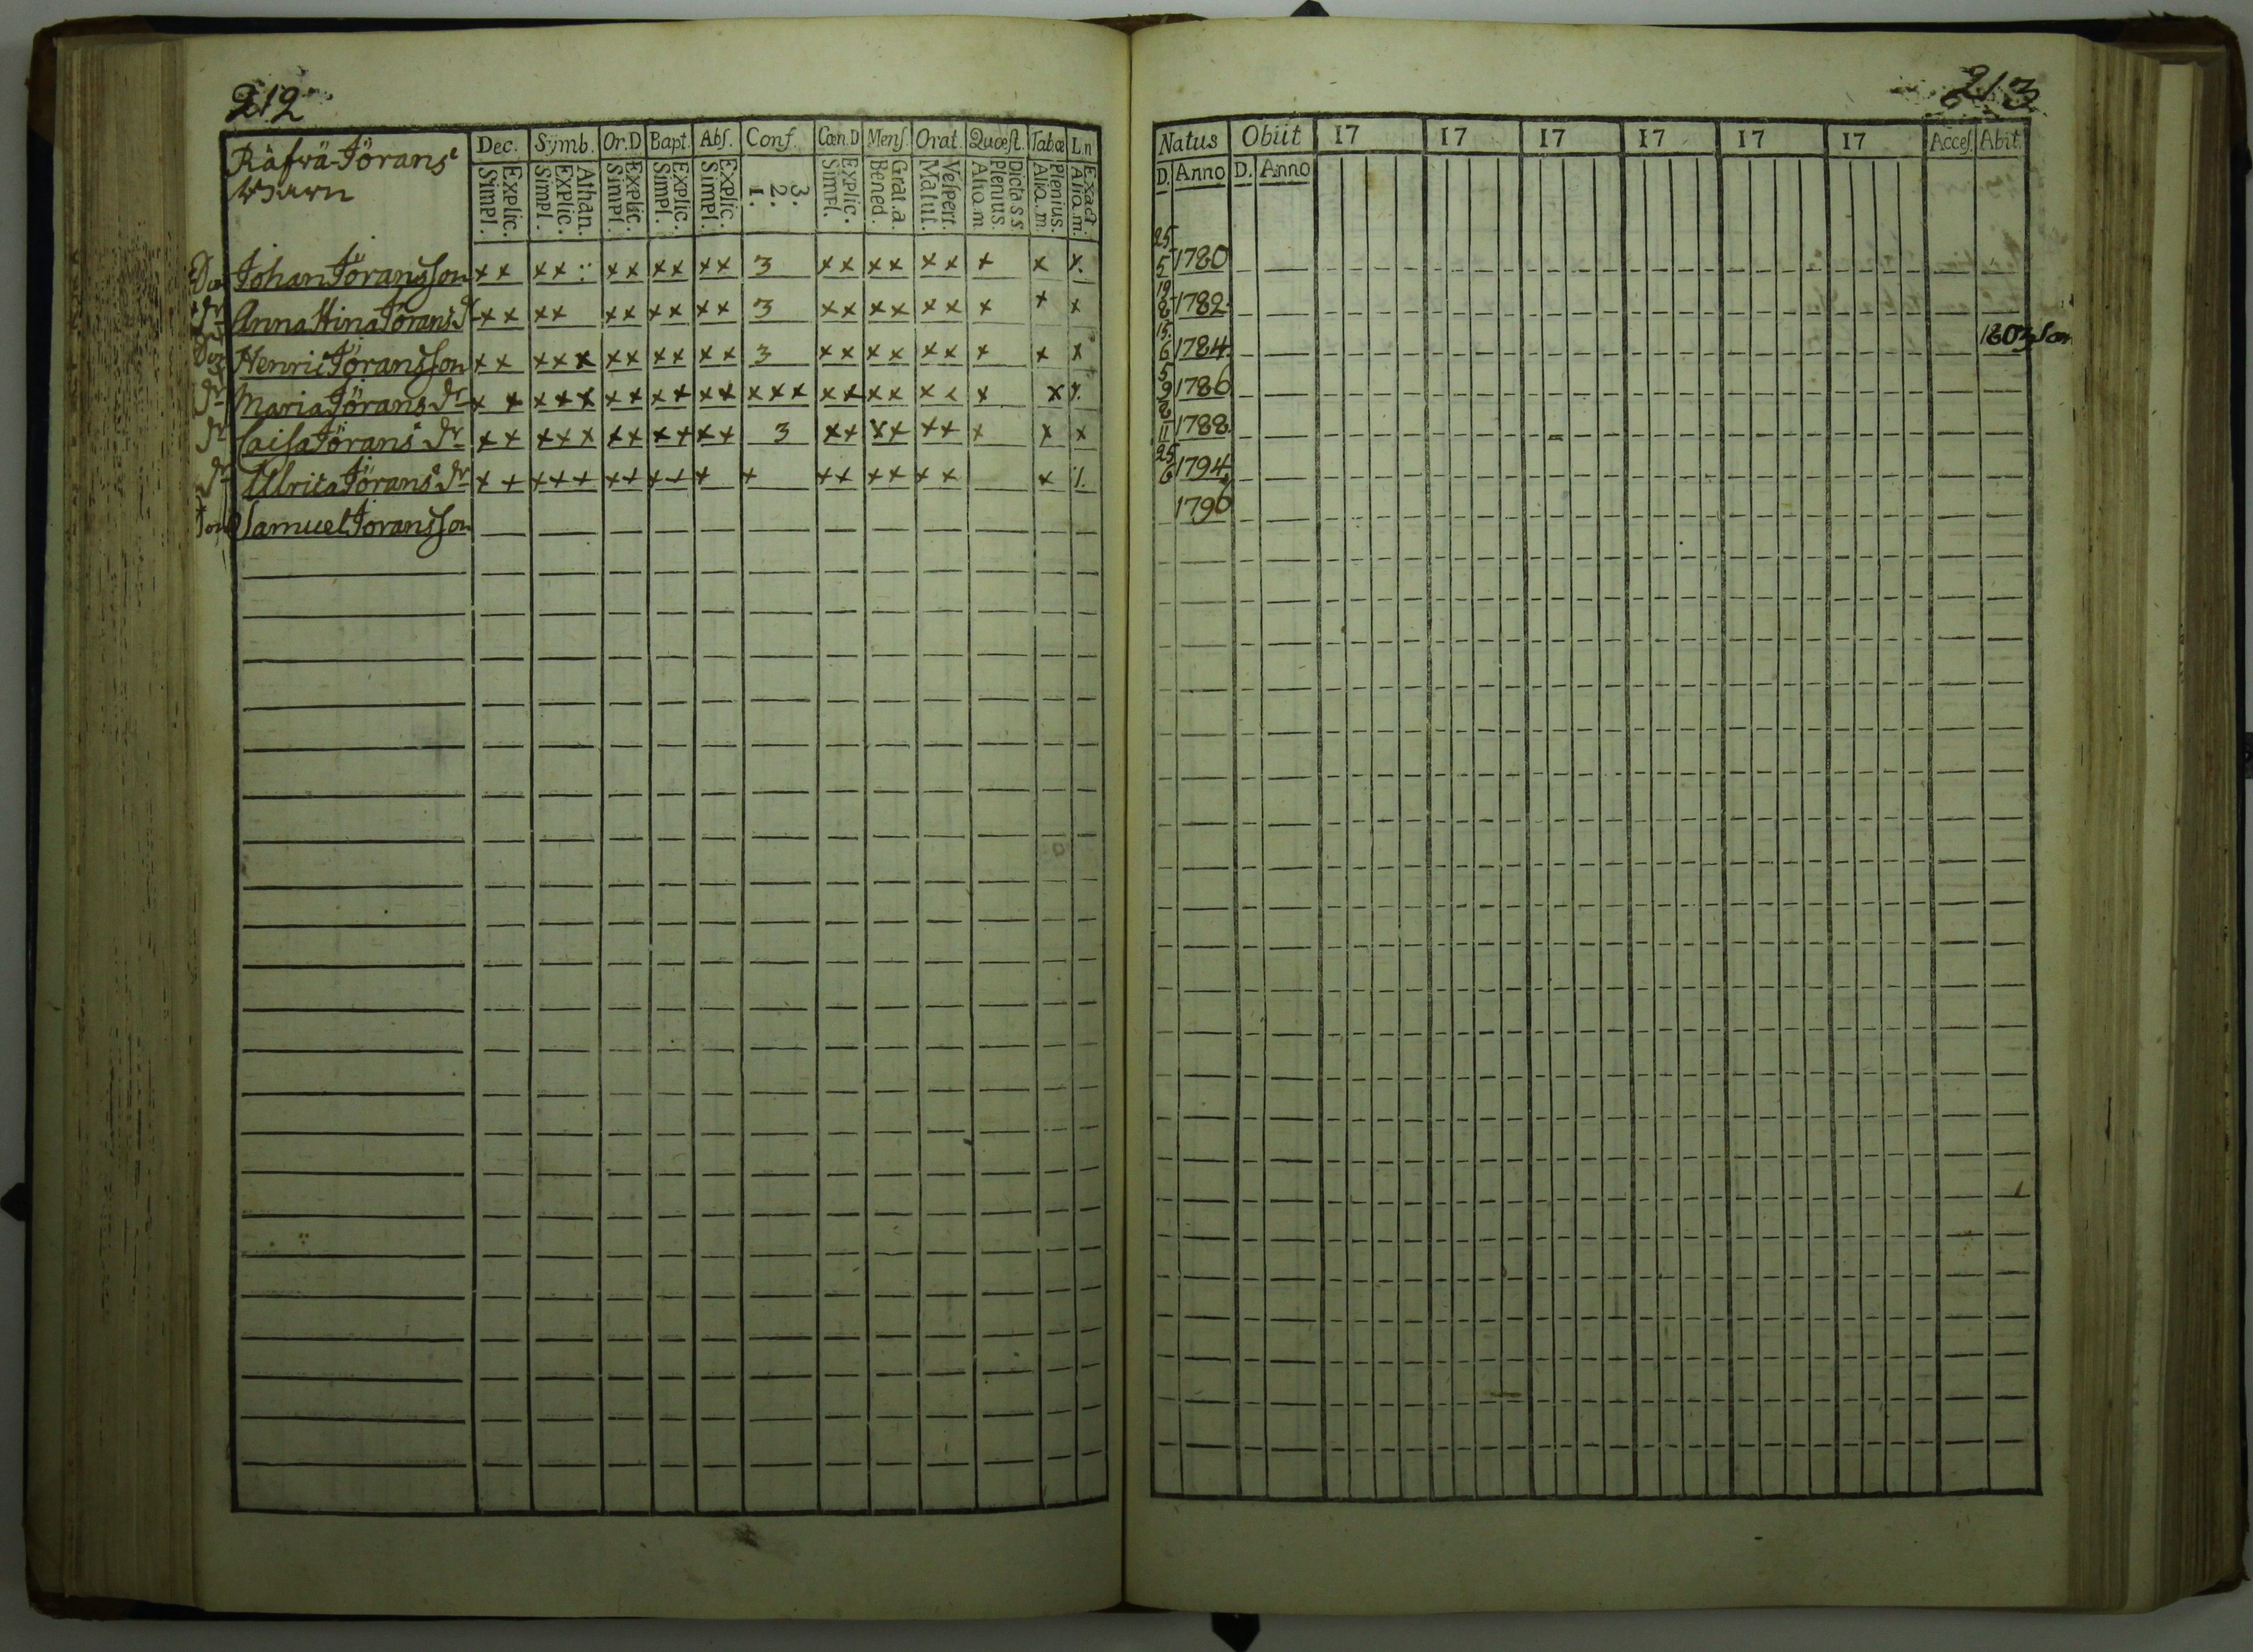 212
Råfwä-Jörans
Barn
Dec. Symb. Or.D Bapt. Abs. Conf. Cœn.D Mens. Orat. Quæst. Tabæ L.n
Explic. Simpl. Athan. Explic. Simpl. Explic. Simpl. Explic. Simpl. Explic. Simpl. 3. 2. 1. Explic. Simpl. Grat.a. Bened. Vespert. Matut. Dicta S S Plenius. Aliq.m Plenius. Aliq.m. Exact. Aliq.m.
Johan Jöransson x x x x x x x x x x 3 x x x x x x x x x
dr Anna Stina Jörans dr x x x x x x x x x x 3 x x x x x x x x x
Henric Jöransson x x x x x x x x x x x 3 x x x x x x x x x
dr Maria Jörans dr x x x x x x x x x x x x x x x x x x x x x x x
dr Caisa Jörans dr x x x x x x x x x x x 3 x x x x x x x x x
dr Ulrica Jörans dr x x x x x x x x x x x x x x x x x x x
Son Samuel Jöransson
213
Natus Obiit 17 17 17 17 17 17 Acces. Abit.
D. Anno D. Anno
25 5 1780
19 8 1782
15 6 1784 1803
5 9 1786
8 11 1788
25 6 1794
1796